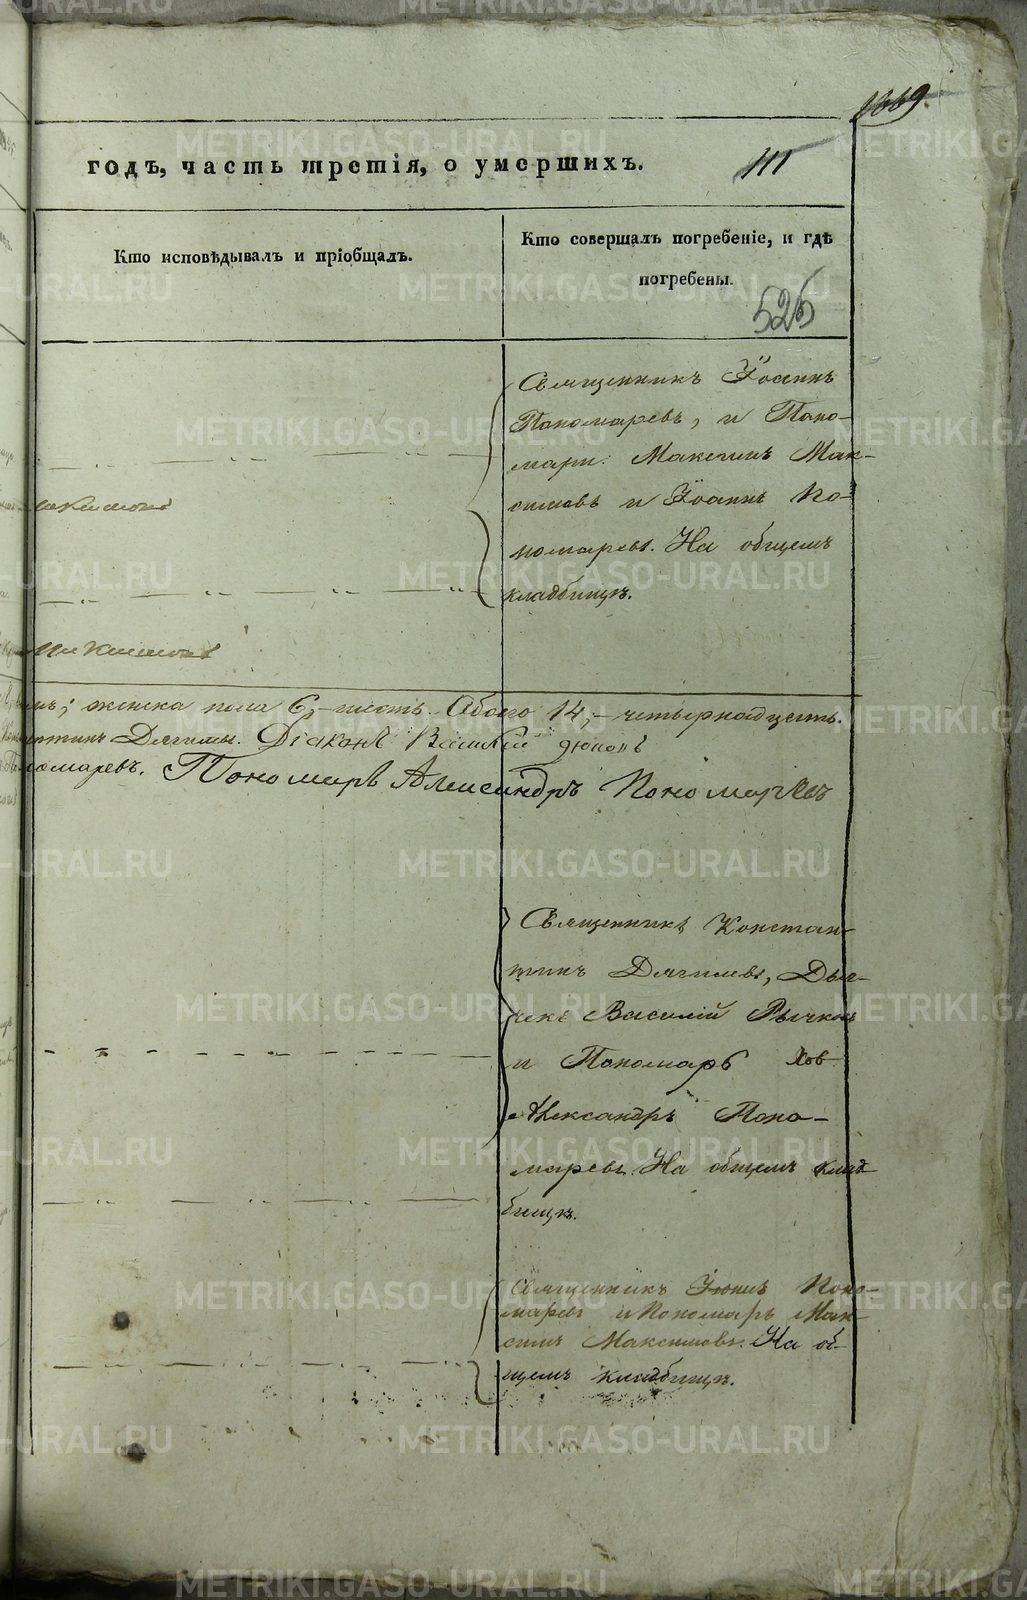 1669.
годъ, часть третія, о умершихъ.
Кто исповѣдывалъ и пріобщалъ.
Кто совершалъ погребеніе, и гдѣ
погребены.
525
Священникъ Іоаннъ
Пономаревъ, и Поно-
мари: Максимъ Мак-
симовъ и Іоаннъ По-
номаревъ. На общемъ
кладбищѣ.
женска пола 6,-шесть. Обоего 14,-четырнадцать.
Дягилевъ. Діаконъ Василій
Пономаревъ. Пономарь Александръ Пономаревъ
Священникъ Констан-
тинъ Дягилевъ, Дья-
чекъ Василій Рычков
и Пономарь
Александръ Поно-
маревъ. На общемъ клад
бищѣ.
Священникъ Іоаннъ Поно-
маревъ и Пономарь Мак-
симъ Максимовъ. На об-
щемъ кладбищѣ.
METRIKI.GASO-URAL.RU